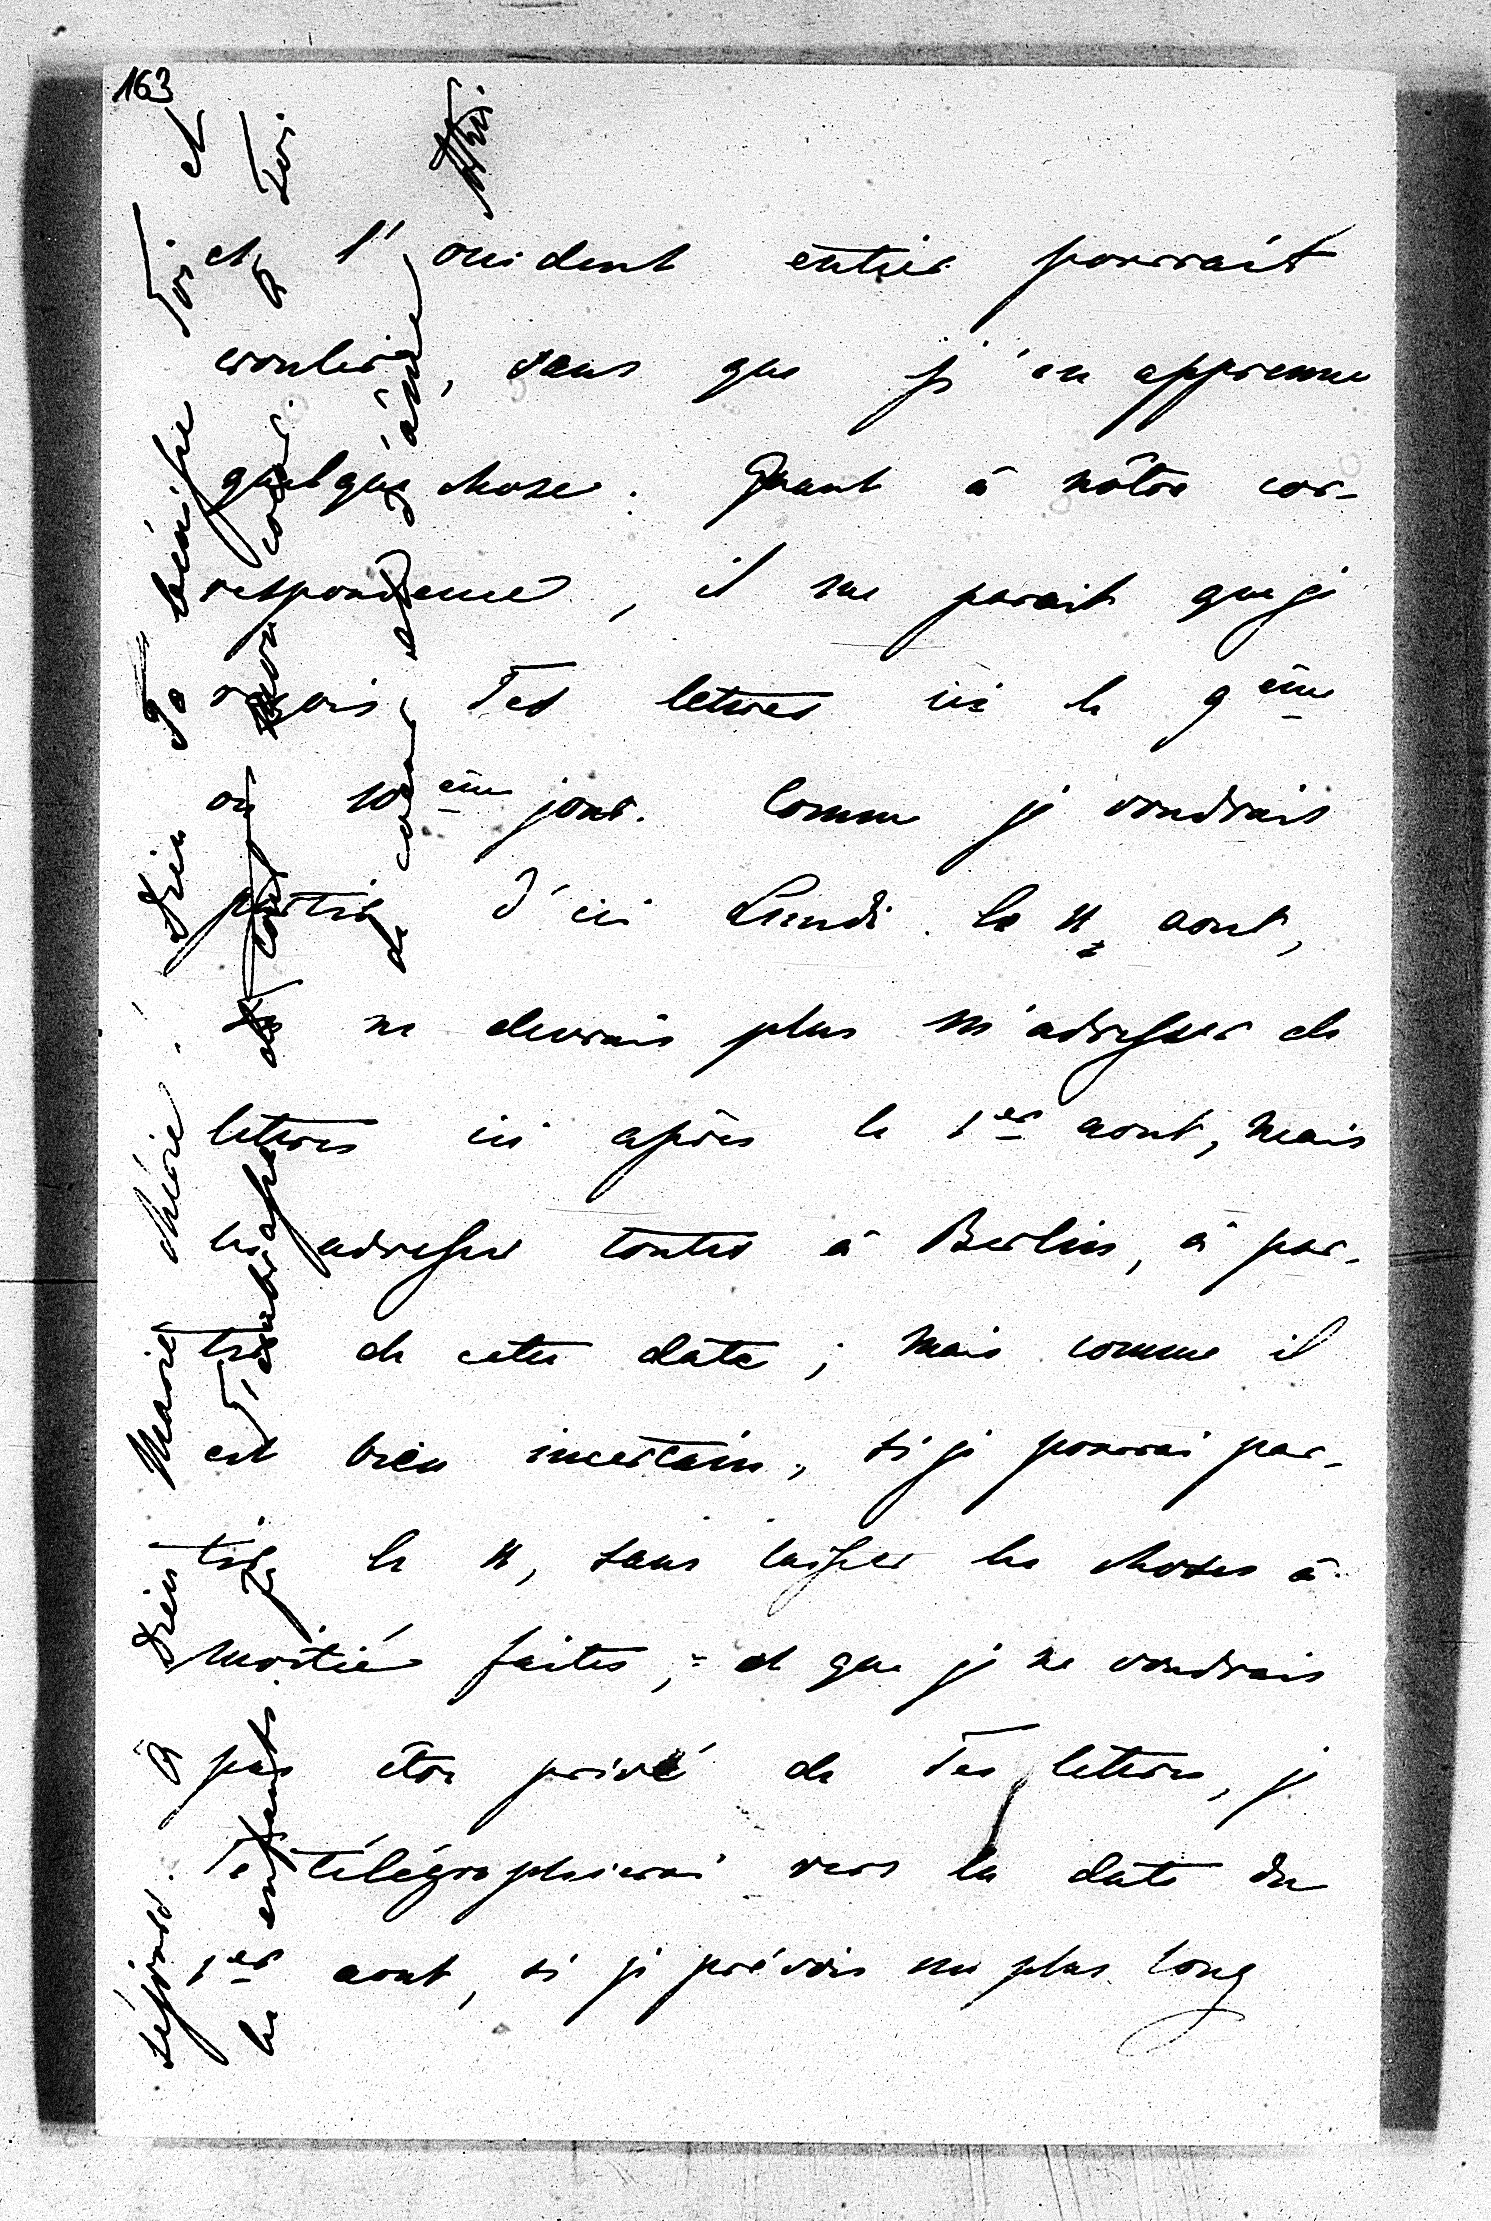 163
et l'occident entier pourrait
crouler, sans que j'en apprenne
quelque chose. Quant à nôtre cor-
respondence, il me parait que je
reçois Tes lettres ici le 9ème
ou 10ème jour. Comme je voudrais
partir d'ici Lundi le 11 aout,
Tu ne devrais plus m'adresser de
lettres ici après le 1er aout, mais
les adresser toutes à Berlin, à par-
tir de cette date; mais comme il
est bien incertain, si je pourrai par-
tir le 11, sans laisser les choses à
moitié faites, et que je ne voudrais
pas être privé de Tes lettres, je
Te télégraphierai vers la date du
1er aout, si je prévois un plus long
séjour. à Dieu Marie chérie. Dieu Te bénisse Toi et
les enfants. Je T'embrasse de tout mon coeur. à Toi
de coeur et d'âme